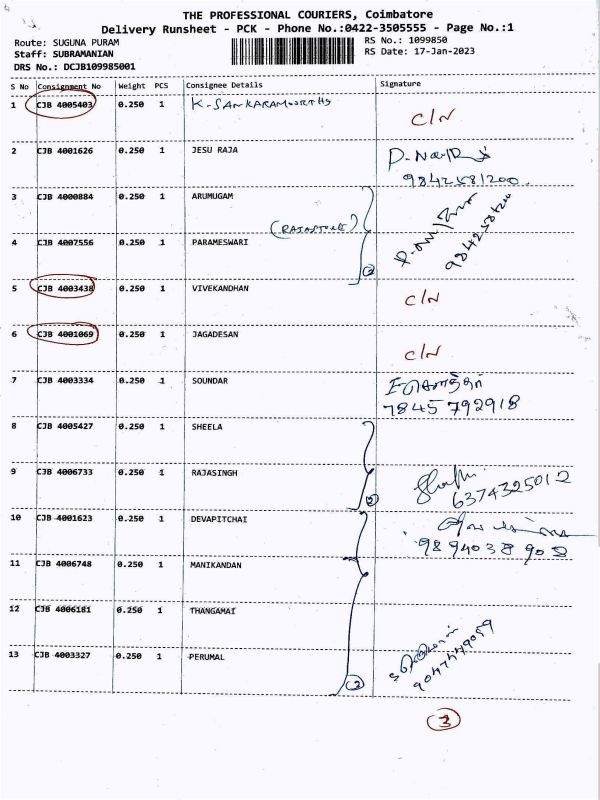 THE PROFESSIONAL COURIERS, Coimbatore
Delivery Runsheet - PCK - Phone No.:0422-3505555 - Page No.:1
Route: SUGUNA PURAM RS No.: 1099850
Staff: SUBRAMANIAN RS Date: 17-Jan-2023
DRS No.: DCJB109985001
S No Consignment No Weight PCS Consignee Details Signature
1 CJB 4005403 0.250 1 K-SANKARAMOORTHY C/N
2 CJB 4001626 0.250 1 JESU RAJA
9842581200
3 CJB 4000884 0.250 1 ARUMUGAM
4 CJB 4007556 0.250 1 PARAMESWARI
9842581200
2
5 CJB 4003438 0.250 1 VIVEKANDHAN C/N
6 CJB 4001069 0.250 1 JAGADESAN C/N
7 CJB 4003334 0.250 1 SOUNDAR
7845792918
8 CJB 4005427 0.250 1 SHEELA
9 CJB 4006733 0.250 1 RAJASINGH
2 6374325012
10 CJB 4001623 0.250 1 DEVAPITCHAI
9894038902
11 CJB 4006748 0.250 1 MANIKANDAN
12 CJB 4006181 0.250 1 THANGAMAI
13 CJB 4003327 0.250 1 PERUMAL
3